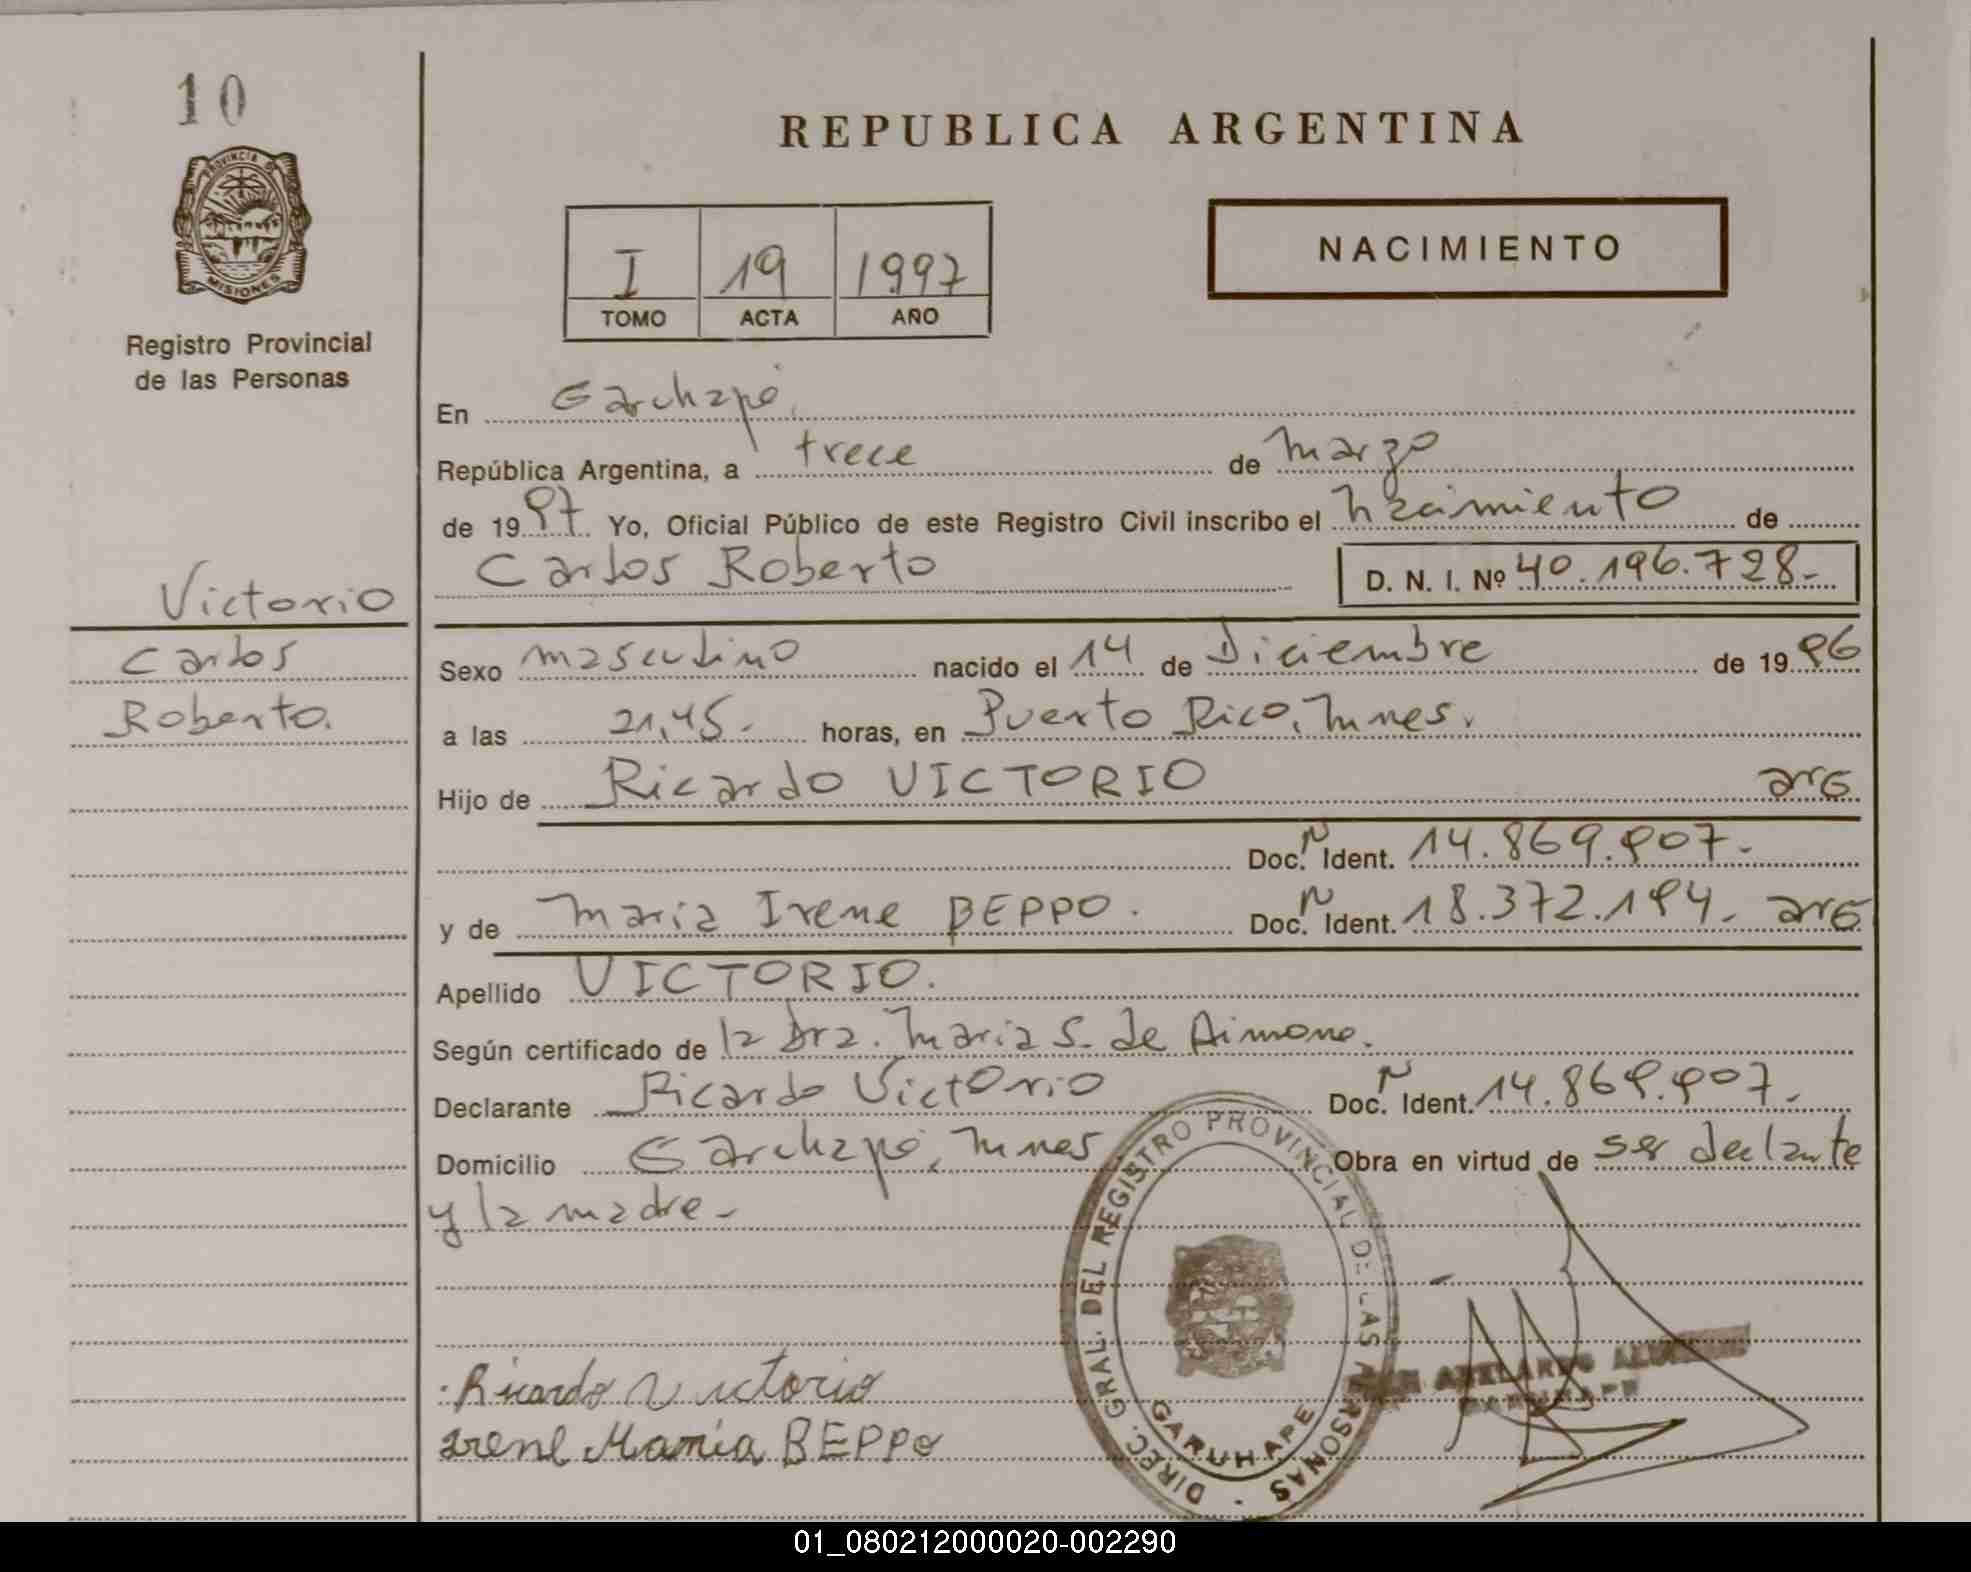 10
PROVINCIA DE
MISIONES
Registro Provincial
de las Personas
REPUBLICA ARGENTINA
I 19 1997
TOMO ACTA AÑO
NACIMIENTO
En Garuhapé.
República Argentina, a trece de marzo
de 19 97. Yo, Oficial Público de este Registro Civil inscribo el nacimiento de
Carlos Roberto D. N. I. Nº 40.196.728.-
Victorio
Carlos
Roberto.
Sexo masculino nacido el 14 de Diciembre de 19 96
a las 21,45.- horas, en Puerto Rico, Mnes.
Hijo de Ricardo VICTORIO arG
Doc. N Ident. 14.869.907.-
y de Maria Irene BEPPO. Doc. N Ident. 18.372.194.- arG
Apellido VICTORIO.
Según certificado de la Dra. Maria S. de Aimone.
Declarante Ricardo Victorio Doc. N Ident. 14.869.907.-
Domicilio Garuhapé, Mnes Obra en virtud de ser declante
y la madre.-
Ricardo Victorio
Irene María BEPPO
DIREC. GRAL. DEL REGISTRO PROVINCIAL DE LAS PERSONAS
GARUHAPE
ABELARDO
01_080212000020-002290